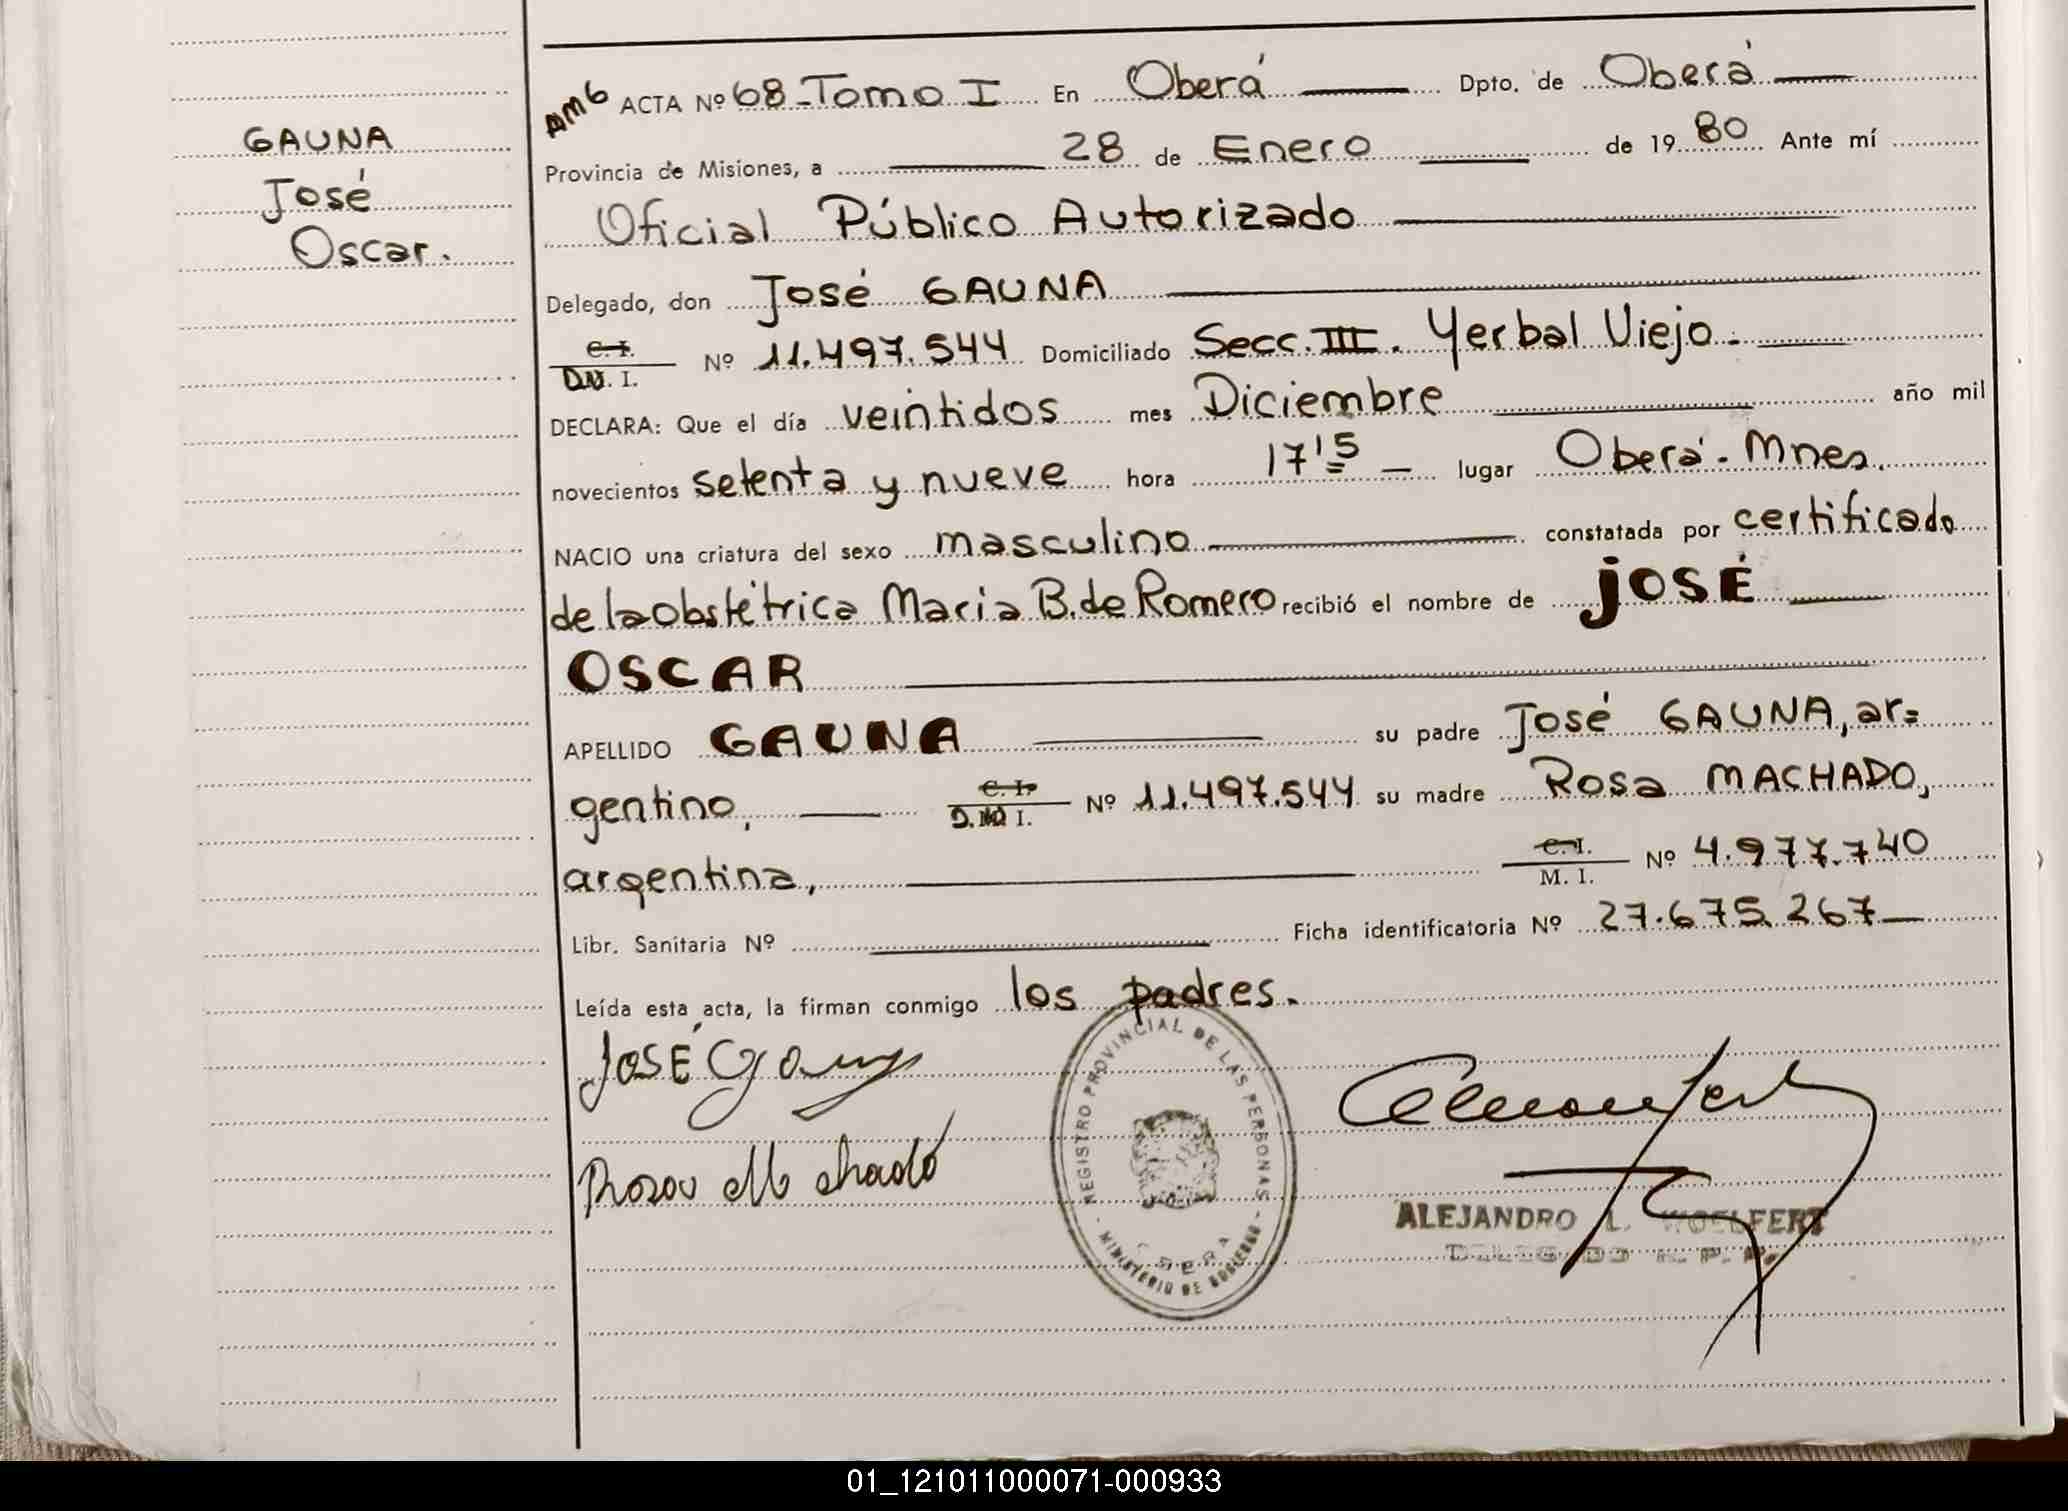 GAUNA
José
Oscar.
ACTA Nº 68-Tomo I En Oberá Dpto. de Oberá
Provincia de Misiones, a 28 de Enero de 1980 Ante mí
Oficial Público Autorizado
Delegado, don José GAUNA
C. I.
D.N. I. Nº 11.497.544 Domiciliado Secc. III. Yerbal Viejo.
DECLARA: Que el día veintidos mes Diciembre año mil
novecientos setenta y nueve hora 17'5 lugar Oberá-Mnes.
NACIO una criatura del sexo masculino constatada por certificado
de la obstétrica Maria B. de Romero recibió el nombre de JOSÉ
OSCAR
APELLIDO GAUNA su padre José GAUNA, ar=
gentino, C. I. D.N. I. Nº 11.497.544 su madre Rosa MACHADO,
argentina, C. I. M. I. Nº 4.977.740
Libr. Sanitaria Nº Ficha identificatoria Nº 27.675.267
Leída esta acta, la firman conmigo los padres.
JOSÉ
REGISTRO PROVINCIAL DE LAS PERSONAS
MINISTERIO DE GOBIERNO
ALEJANDRO L. WOELFERT
01_121011000071-000933